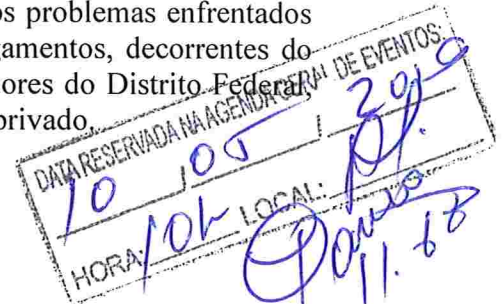 os problemas enfrentados
gamentos, decorrentes do
ores do Distrito Federal,
privado.
DATA RESERVADA NA AGENDA GERAL DE EVENTOS.
10 / 05 / 2019
HORA: 10h LOCAL: Pl.
11.68